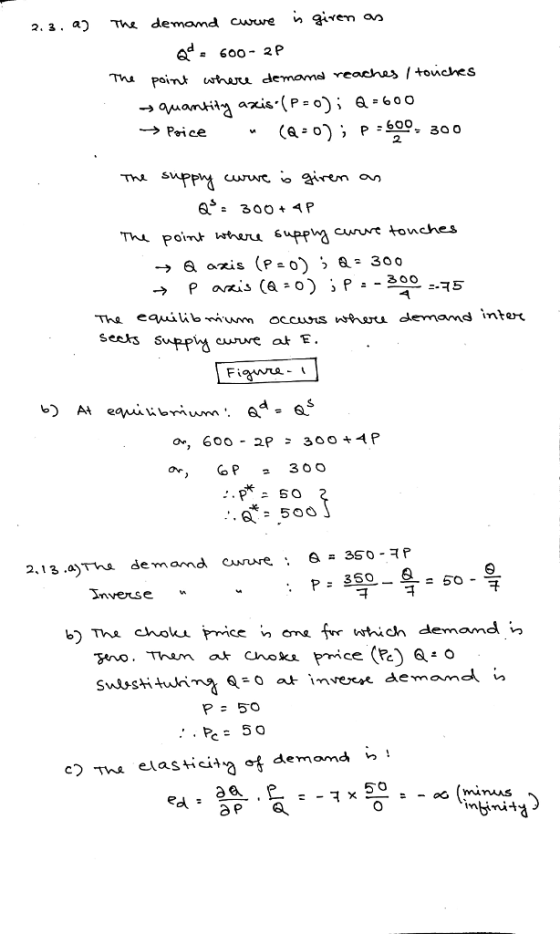 2.3. a) The demand curve is given as
Q^d = 600 - 2P
The point where demand reaches / touches
→ quantity axis (P=0) ; Q = 600
→ Price " (Q=0) ; P = 600/2 = 300
The supply curve is given as
Q^s = 300 + 4P
The point where supply curve touches
→ Q axis (P=0) ; Q = 300
→ P axis (Q=0) ; P = - 300/4 = -75
The equilibrium occurs where demand inter
sects supply curve at E.
Figure - 1
b) At equilibrium : Q^d = Q^s
or, 600 - 2P = 300 + 4P
or, 6P = 300
∴ P* = 50 }
∴ Q* = 500 }
2.13. a) The demand curve : Q = 350 - 7P
Inverse " " : P = 350/7 - Q/7 = 50 - Q/7
b) The choke price is one for which demand is
zero. Then at choke price (Pc) Q = 0
Substituting Q = 0 at inverse demand is
P = 50
∴ Pc = 50
c) The elasticity of demand is :
ed = ∂Q/∂P . P/Q = - 7 × 50/0 = - ∞ (minus infinity)